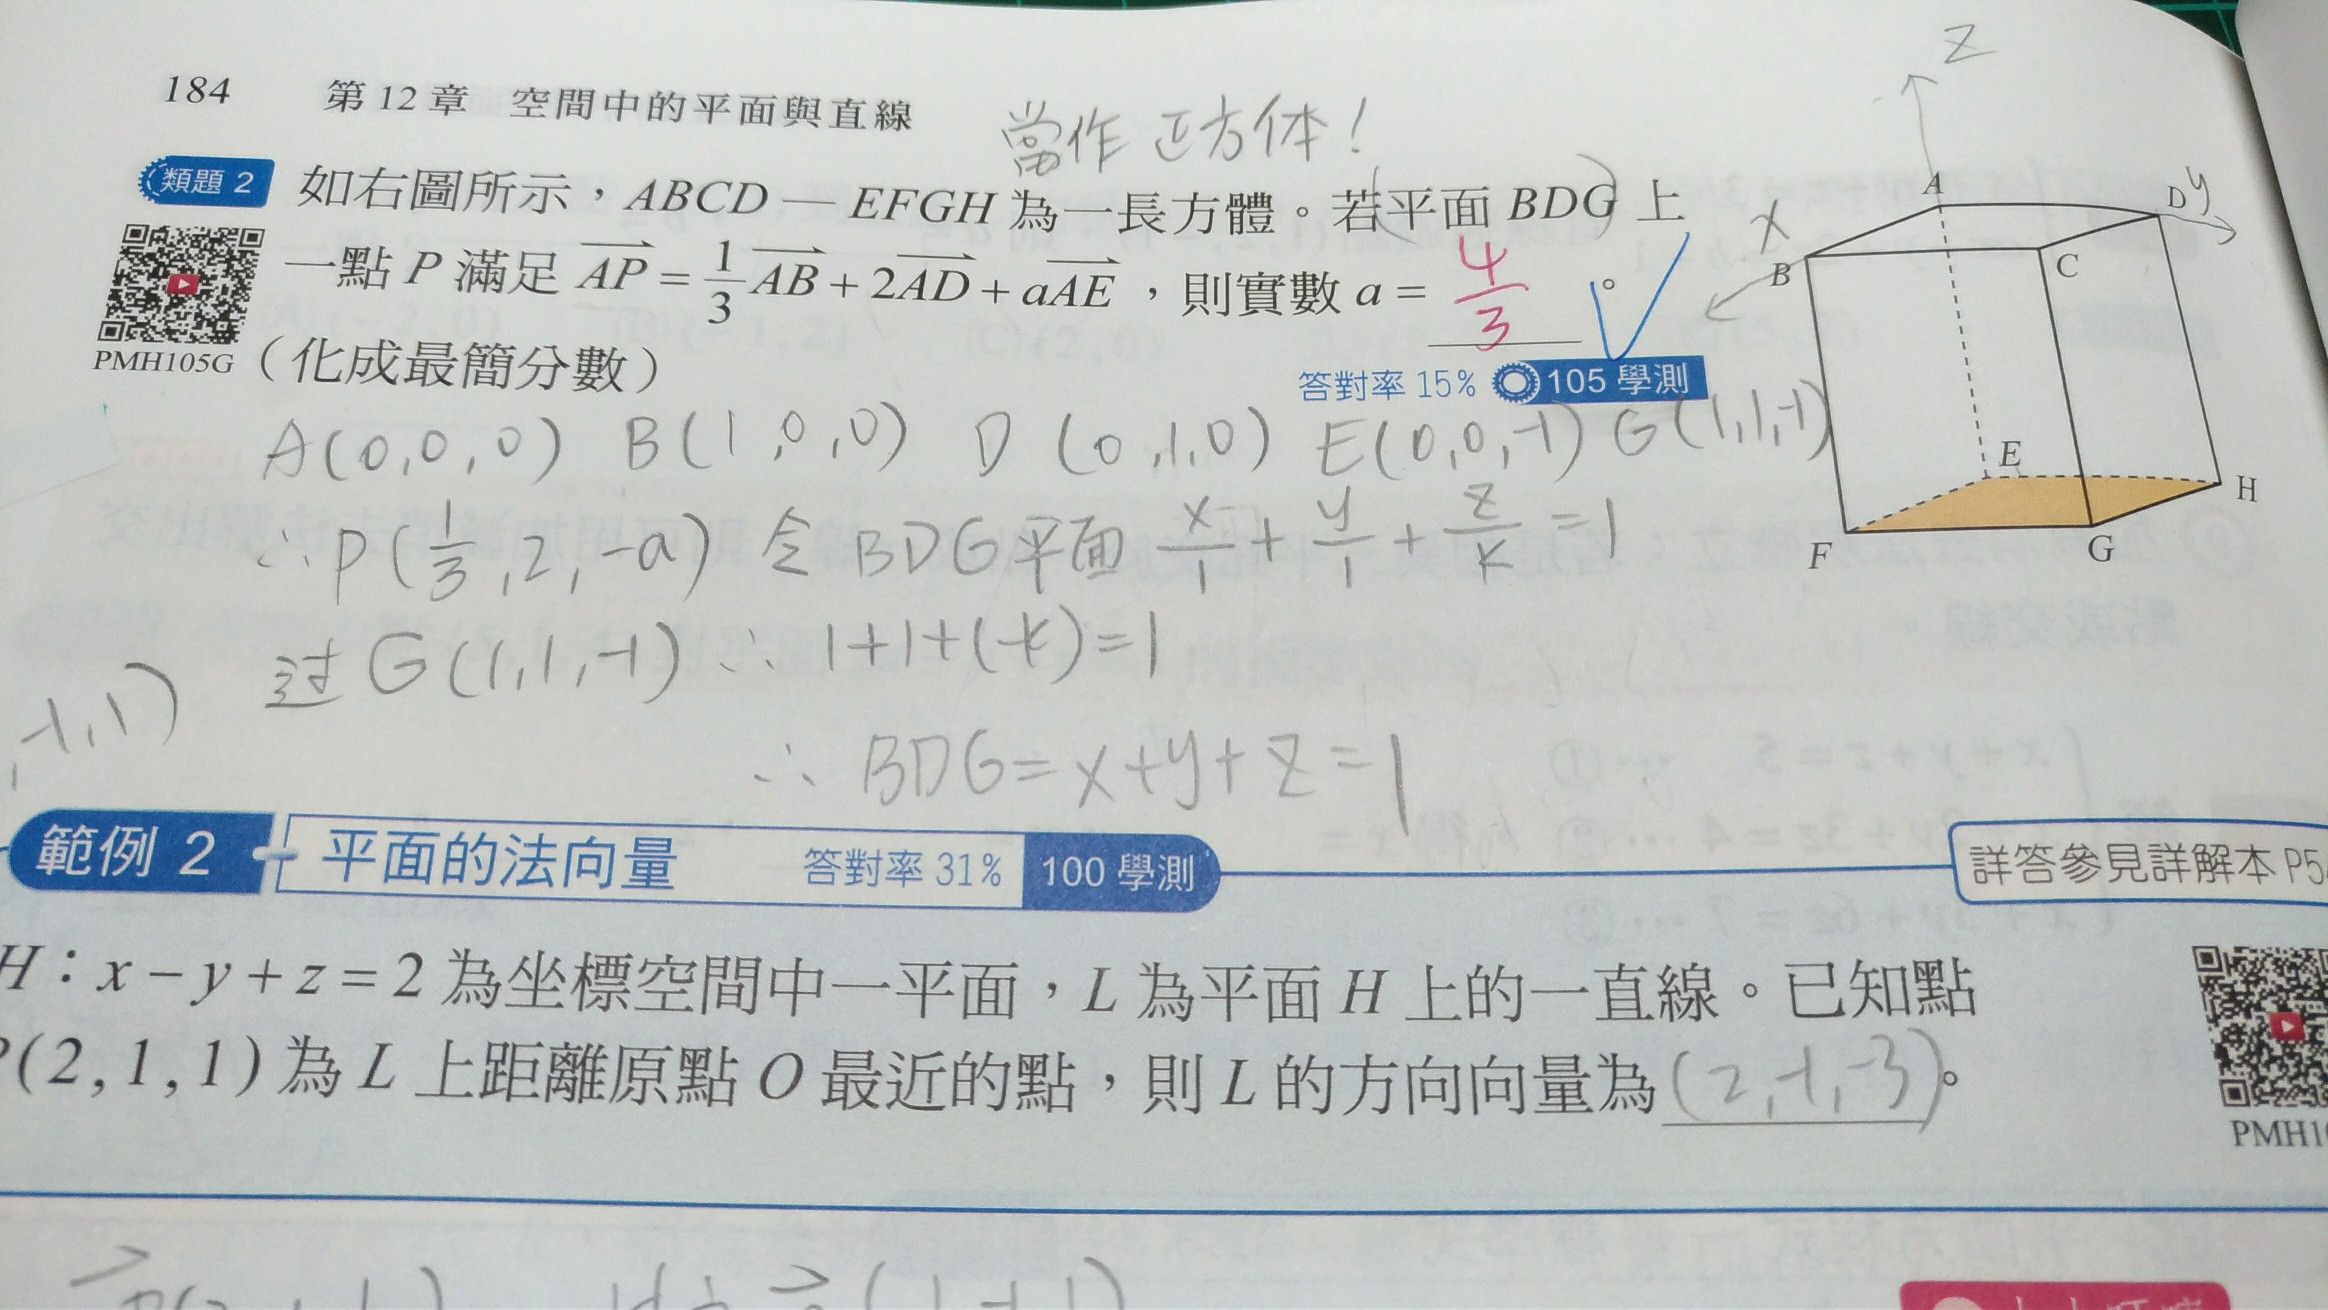 184 第 12 章 空間中的平面與直線
當作 正方体！
z
類題 2 如右圖所示，ABCD — EFGH 為一長方體。若平面 BDG 上
一點 P 滿足 AP = 1/3 AB + 2AD + aAE ，則實數 a = 4/3 。
PMH105G （化成最簡分數）
答對率 15% 105 學測
A
D y
x
B
C
E
H
F
G
A(0,0,0) B(1,0,0) D(0,1,0) E(0,0,-1) G(1,1,-1)
∴P(1/3,2,-a) 令BDG平面 x/1 + y/1 + z/k = 1
过G(1,1,-1) ∴ 1+1+(-k)=1
,-1,1)
∴ BDG = x+y+z=1
範例 2 平面的法向量 答對率 31% 100 學測
詳答參見詳解本 P5
H：x − y + z = 2 為坐標空間中一平面，L 為平面 H 上的一直線。已知點
P(2, 1, 1) 為 L 上距離原點 O 最近的點，則 L 的方向向量為 (2,-1,-3)。
PMH10